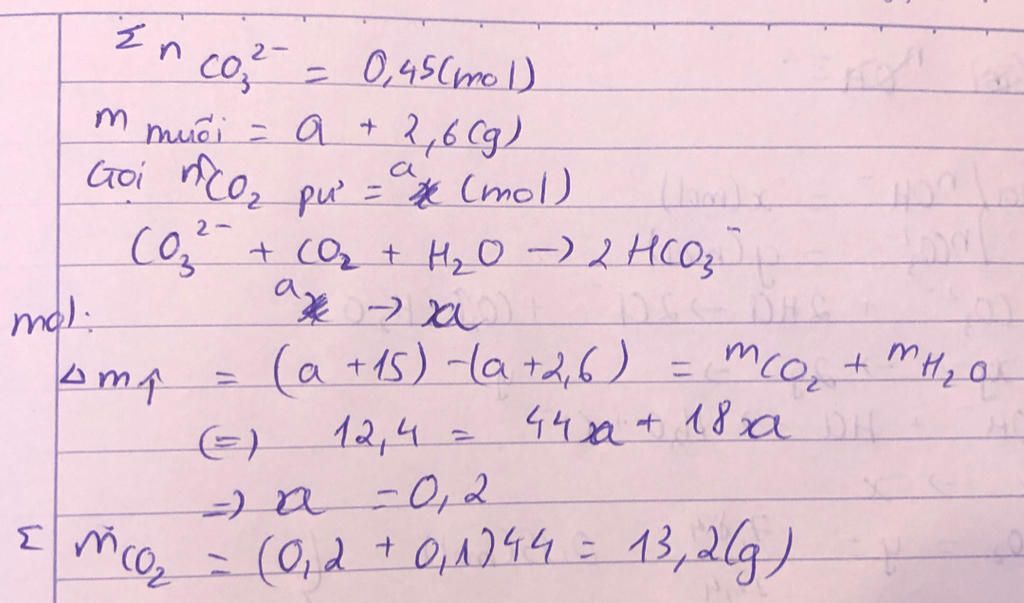 Σ n CO₃²⁻ = 0,45(mol)
m muối = a + 2,6(g)
Gọi nCO₂ pư = a (mol)
CO₃²⁻ + CO₂ + H₂O → 2HCO₃⁻
mol: a → a
Δm↑ = (a + 15) - (a + 2,6) = mCO₂ + mH₂O
(=) 12,4 = 44a + 18a
=> a = 0,2
Σ mCO₂ = (0,2 + 0,1)44 = 13,2(g)